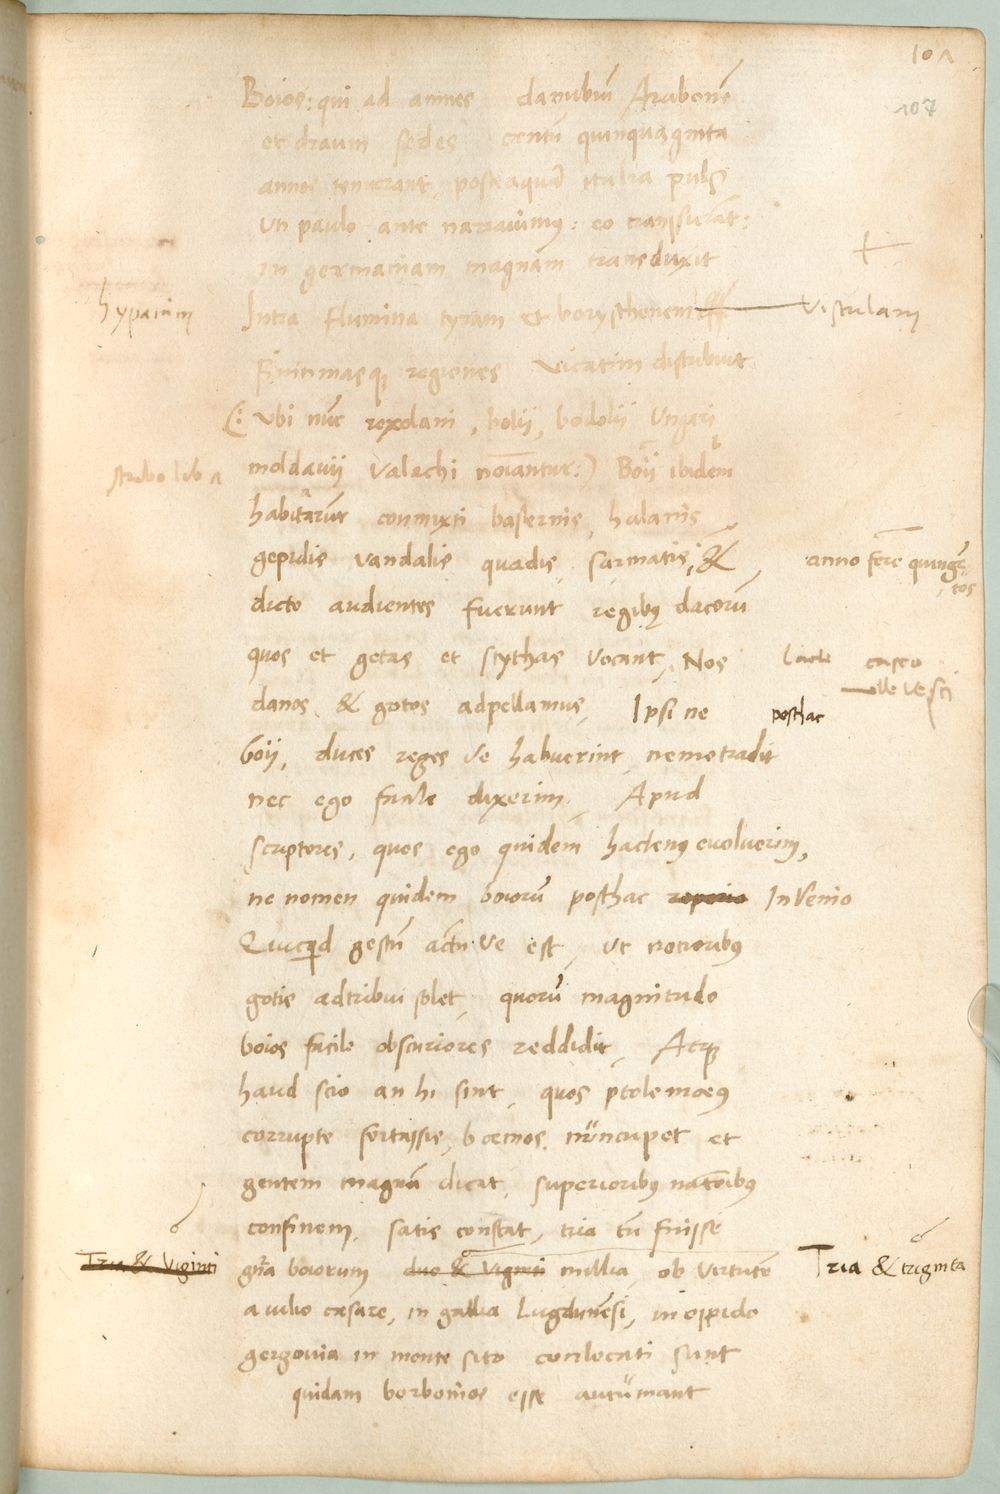 101
107
Boios: qui ad amnes danubiū Arabonē
et draum sedes centū quinquaginta
annos tenuerant, posteaquā italia pulsi
Uti paulo ante narravimus: eo transierāt:
in germaniam magnam transduxit
hypanim
Intra flumina tyram et borysthenem
Vistulam
finitimasq; regiones vicatim distribuit
(: Vbi nūc roxolani, bolii, bodolii Ungari
moldavii Valachi noīantur:) Boii ibidem
strabo lib
habitarūt conmixti basternis, halanis,
gepidis vandalis quadis, sarmatis, &
anno ferē quingē
tos
dicto audientes fuerunt regibus dacorū
quos et getas et scythas vocant, Nos
lacte caseo
danos & gotos adpellamus, Ipsi ne
posthac
boii, duces reges ve habuerint, nemo tradit
nec ego facile dixerim, Apud
scriptores, quos ego quidem hactenus evolverim,
ne nomen quidem boiorū posthac reperio InVenio
Quicquid gestū actū ve est, ut notioribus
gotis adtribui solet, quorū magnitudo
boios facile obscuriores reddidit, Atq;
haud scio an hi sint, quos ptolemaeus
corrupte fortassis, boemos nūncupet et
gentem magnā dicat, superioribus nationibus
confinem, satis constat, tria tū fuisse
Tria & Viginti
gña boiorum duo & Viginti millia, ob virtutē
Tria & triginta
a iulio caesare, in gallia Lugdunēsi, in oppido
gergovia in monte sito conlocati sunt
quidam borbonios esse autumant